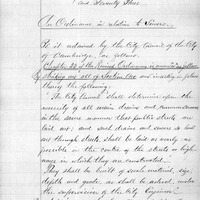 and Seventy Three
An Ordinance in relation to Sewers.
Be it ordained by the City Council of the City
of Cambridge, as follows.
Chapter 22 of the Revised Ordinances is amended
striking out all of Section one and inserting in place
thereof the following.
"The City Council shall determine upon the
necessity of all main drains and
in the same manner that public streets are
laid out; and such drains and sewers as are
run through streets, shall be laid as nearly as
possible in the centre of the streets or high-
ways in which they are constructed."
They shall be built of such material, size,
depth and grade, as shall be ordered, under
the supervision of the City Engineer